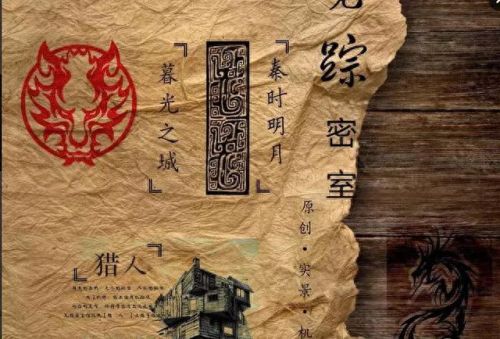 踪密室
原创·实景·机
秦时明月
暮光之城
猎人